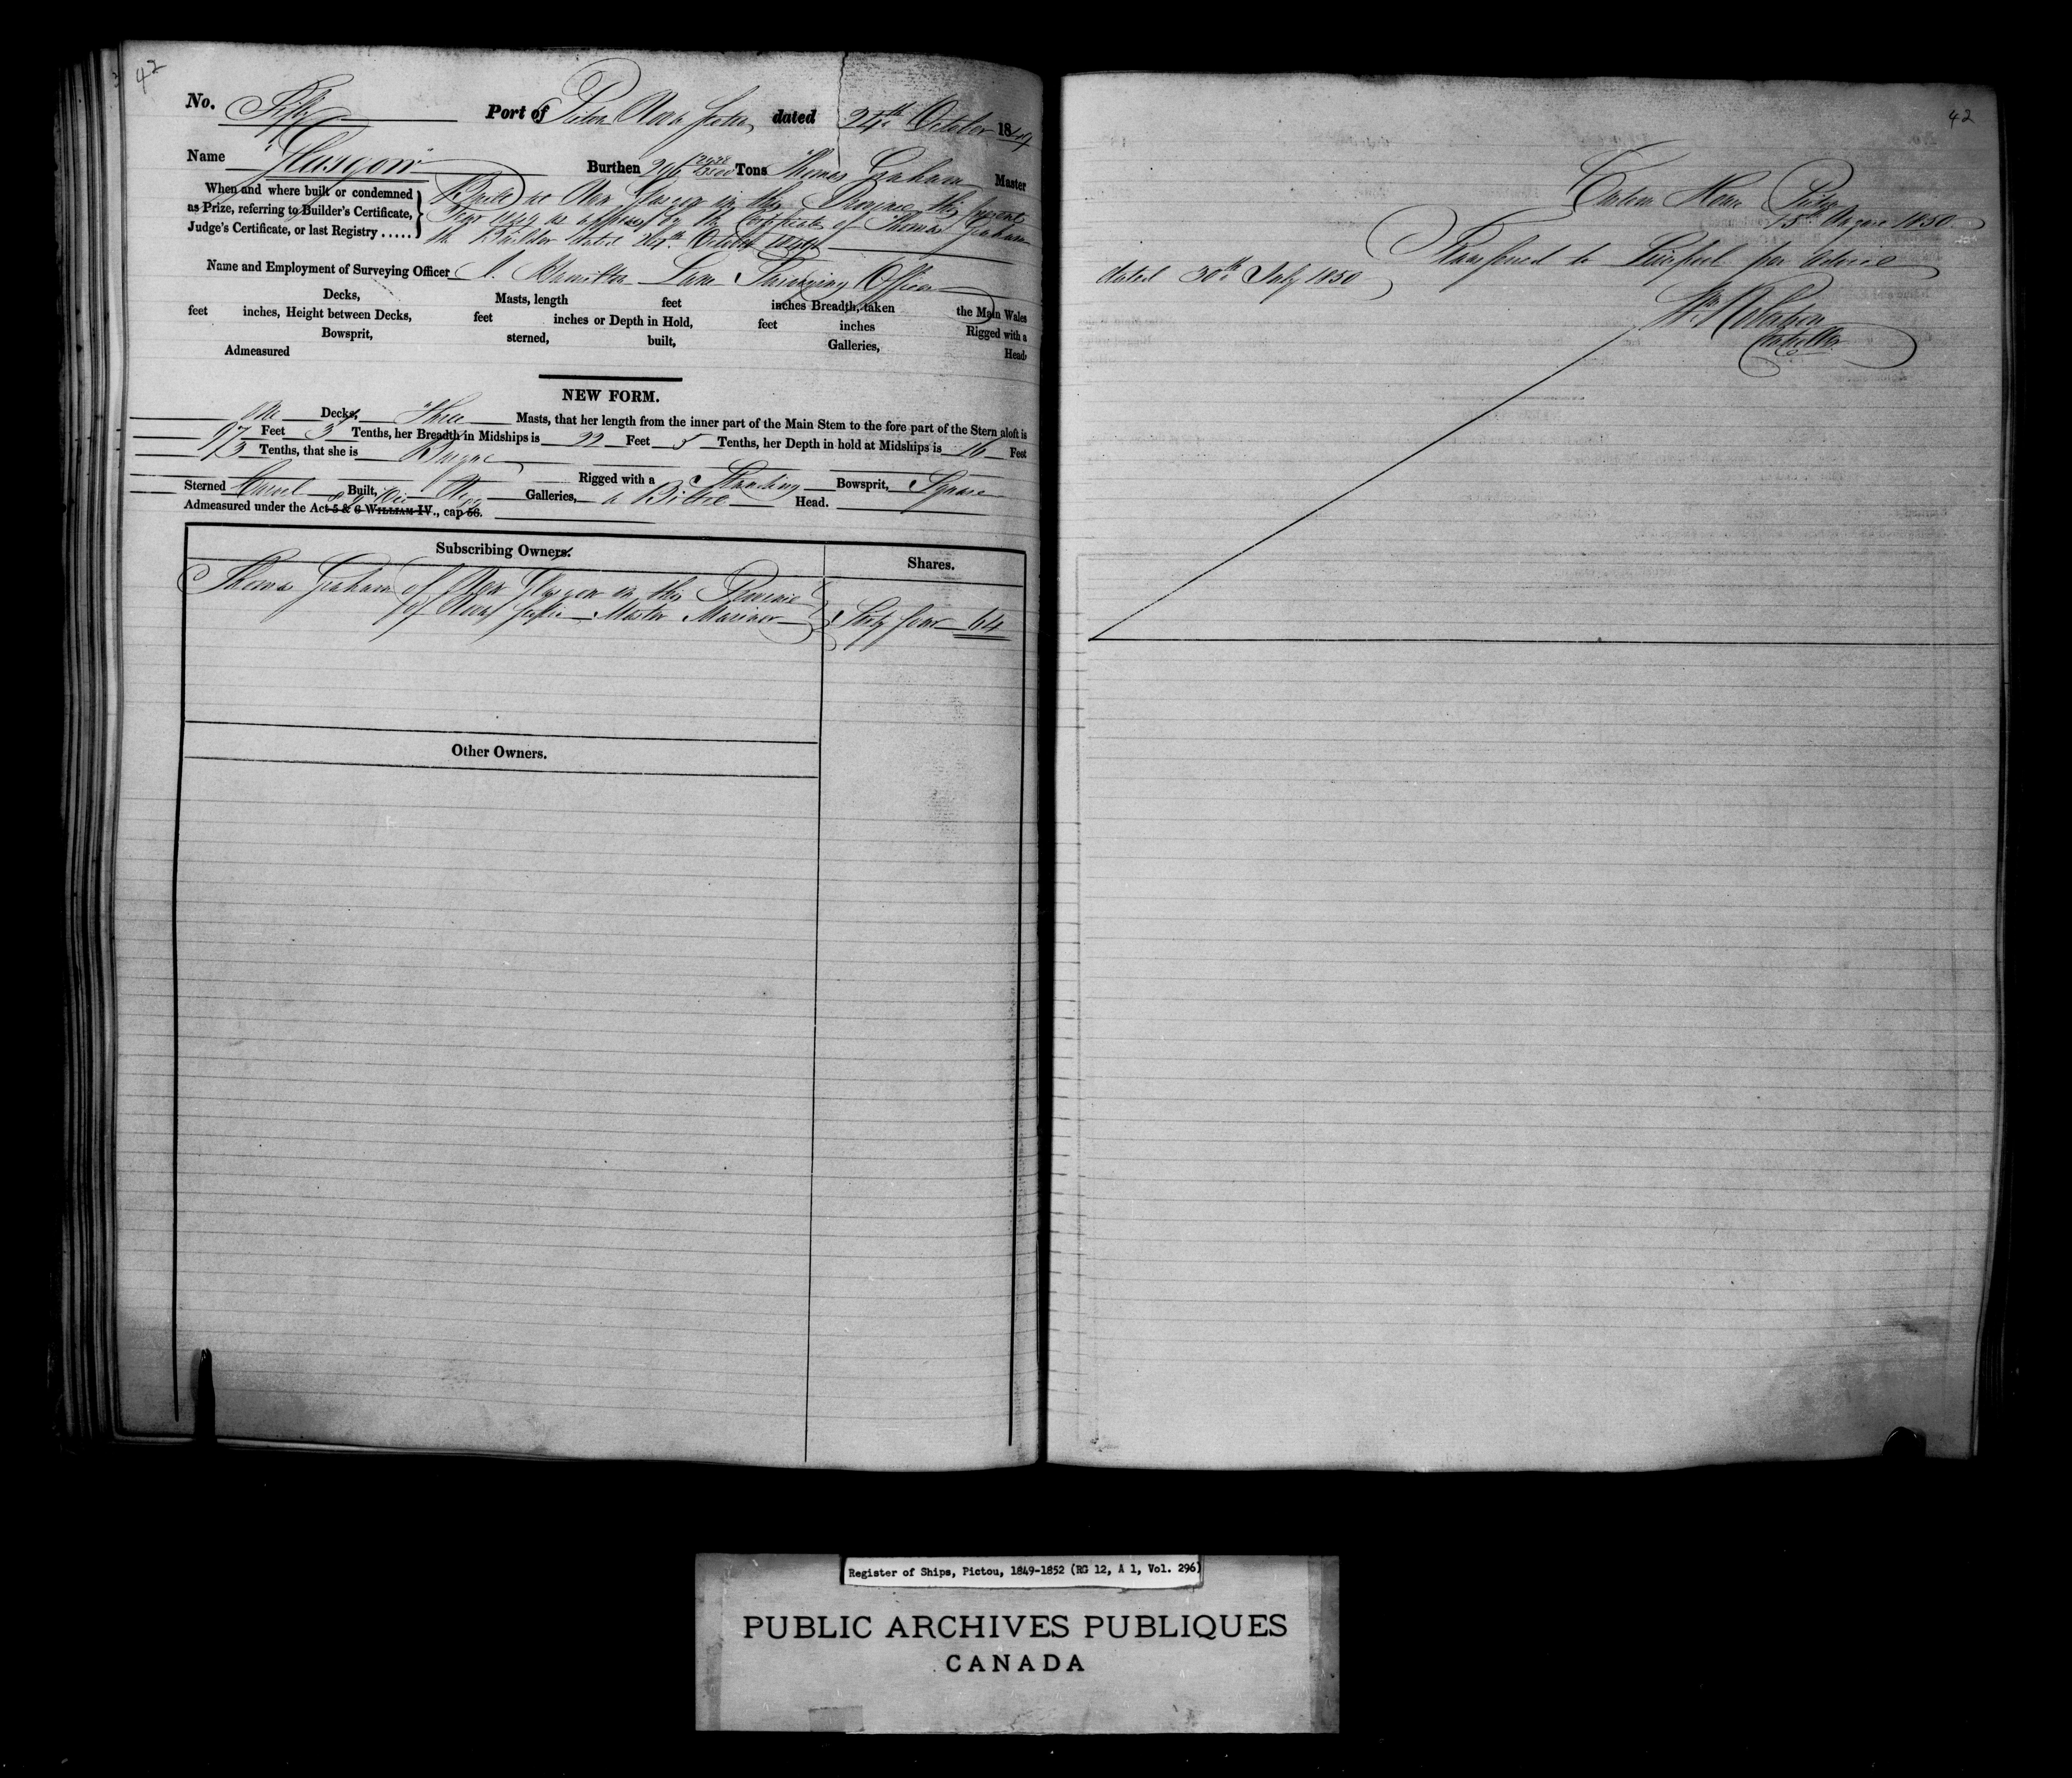 42
No. Fifty Port of Pictou Nova Scotia dated 24th October 1849
Name "Glasgow" Burthen 296 2428/3500 Tons Thomas Graham Master
When and where built or condemned
as Prize, referring to Builder's Certificate,
Judge's Certificate, or last Registry .....
Built at New Glasgow in this Province this present
Year 1849 as appears by the Certificate of Thomas Graham
the Builder dated October 1849
Name and Employment of Surveying Officer Hamilton Lane Surveying Officer
Decks, Masts, length feet inches Breadth, taken the Main Wales
feet inches, Height between Decks, feet inches or Depth in Hold, feet inches Rigged with a
Bowsprit, sterned, built, Galleries, Head,
Admeasured
NEW FORM.
One Decks, Three Masts, that her length from the inner part of the Main Stem to the fore part of the Stern aloft is
97 Feet 3 Tenths, her Breadth in Midships is 22 Feet 5 Tenths, her Depth in hold at Midships is 16 Feet
/3 Tenths, that she is Barque
Rigged with a Standing Bowsprit, Square
Sterned Carvel Built, No Galleries, a Billet Head.
Admeasured under the Act 5 & 6 WILLIAM IV., cap 56.
Subscribing Owners. Shares.
Thomas Graham of New Glasgow in this Province
of Nova Scotia Master Mariner Sixty four 64
Other Owners.
42
Custom House Pictou
15th August 1850
Transferred to Liverpool per advice
dated 30th July 1850
Wm Robertson
Controller
Register of Ships, Pictou, 1849-1852 (RG 12, A 1, Vol. 296)
PUBLIC ARCHIVES PUBLIQUES
CANADA